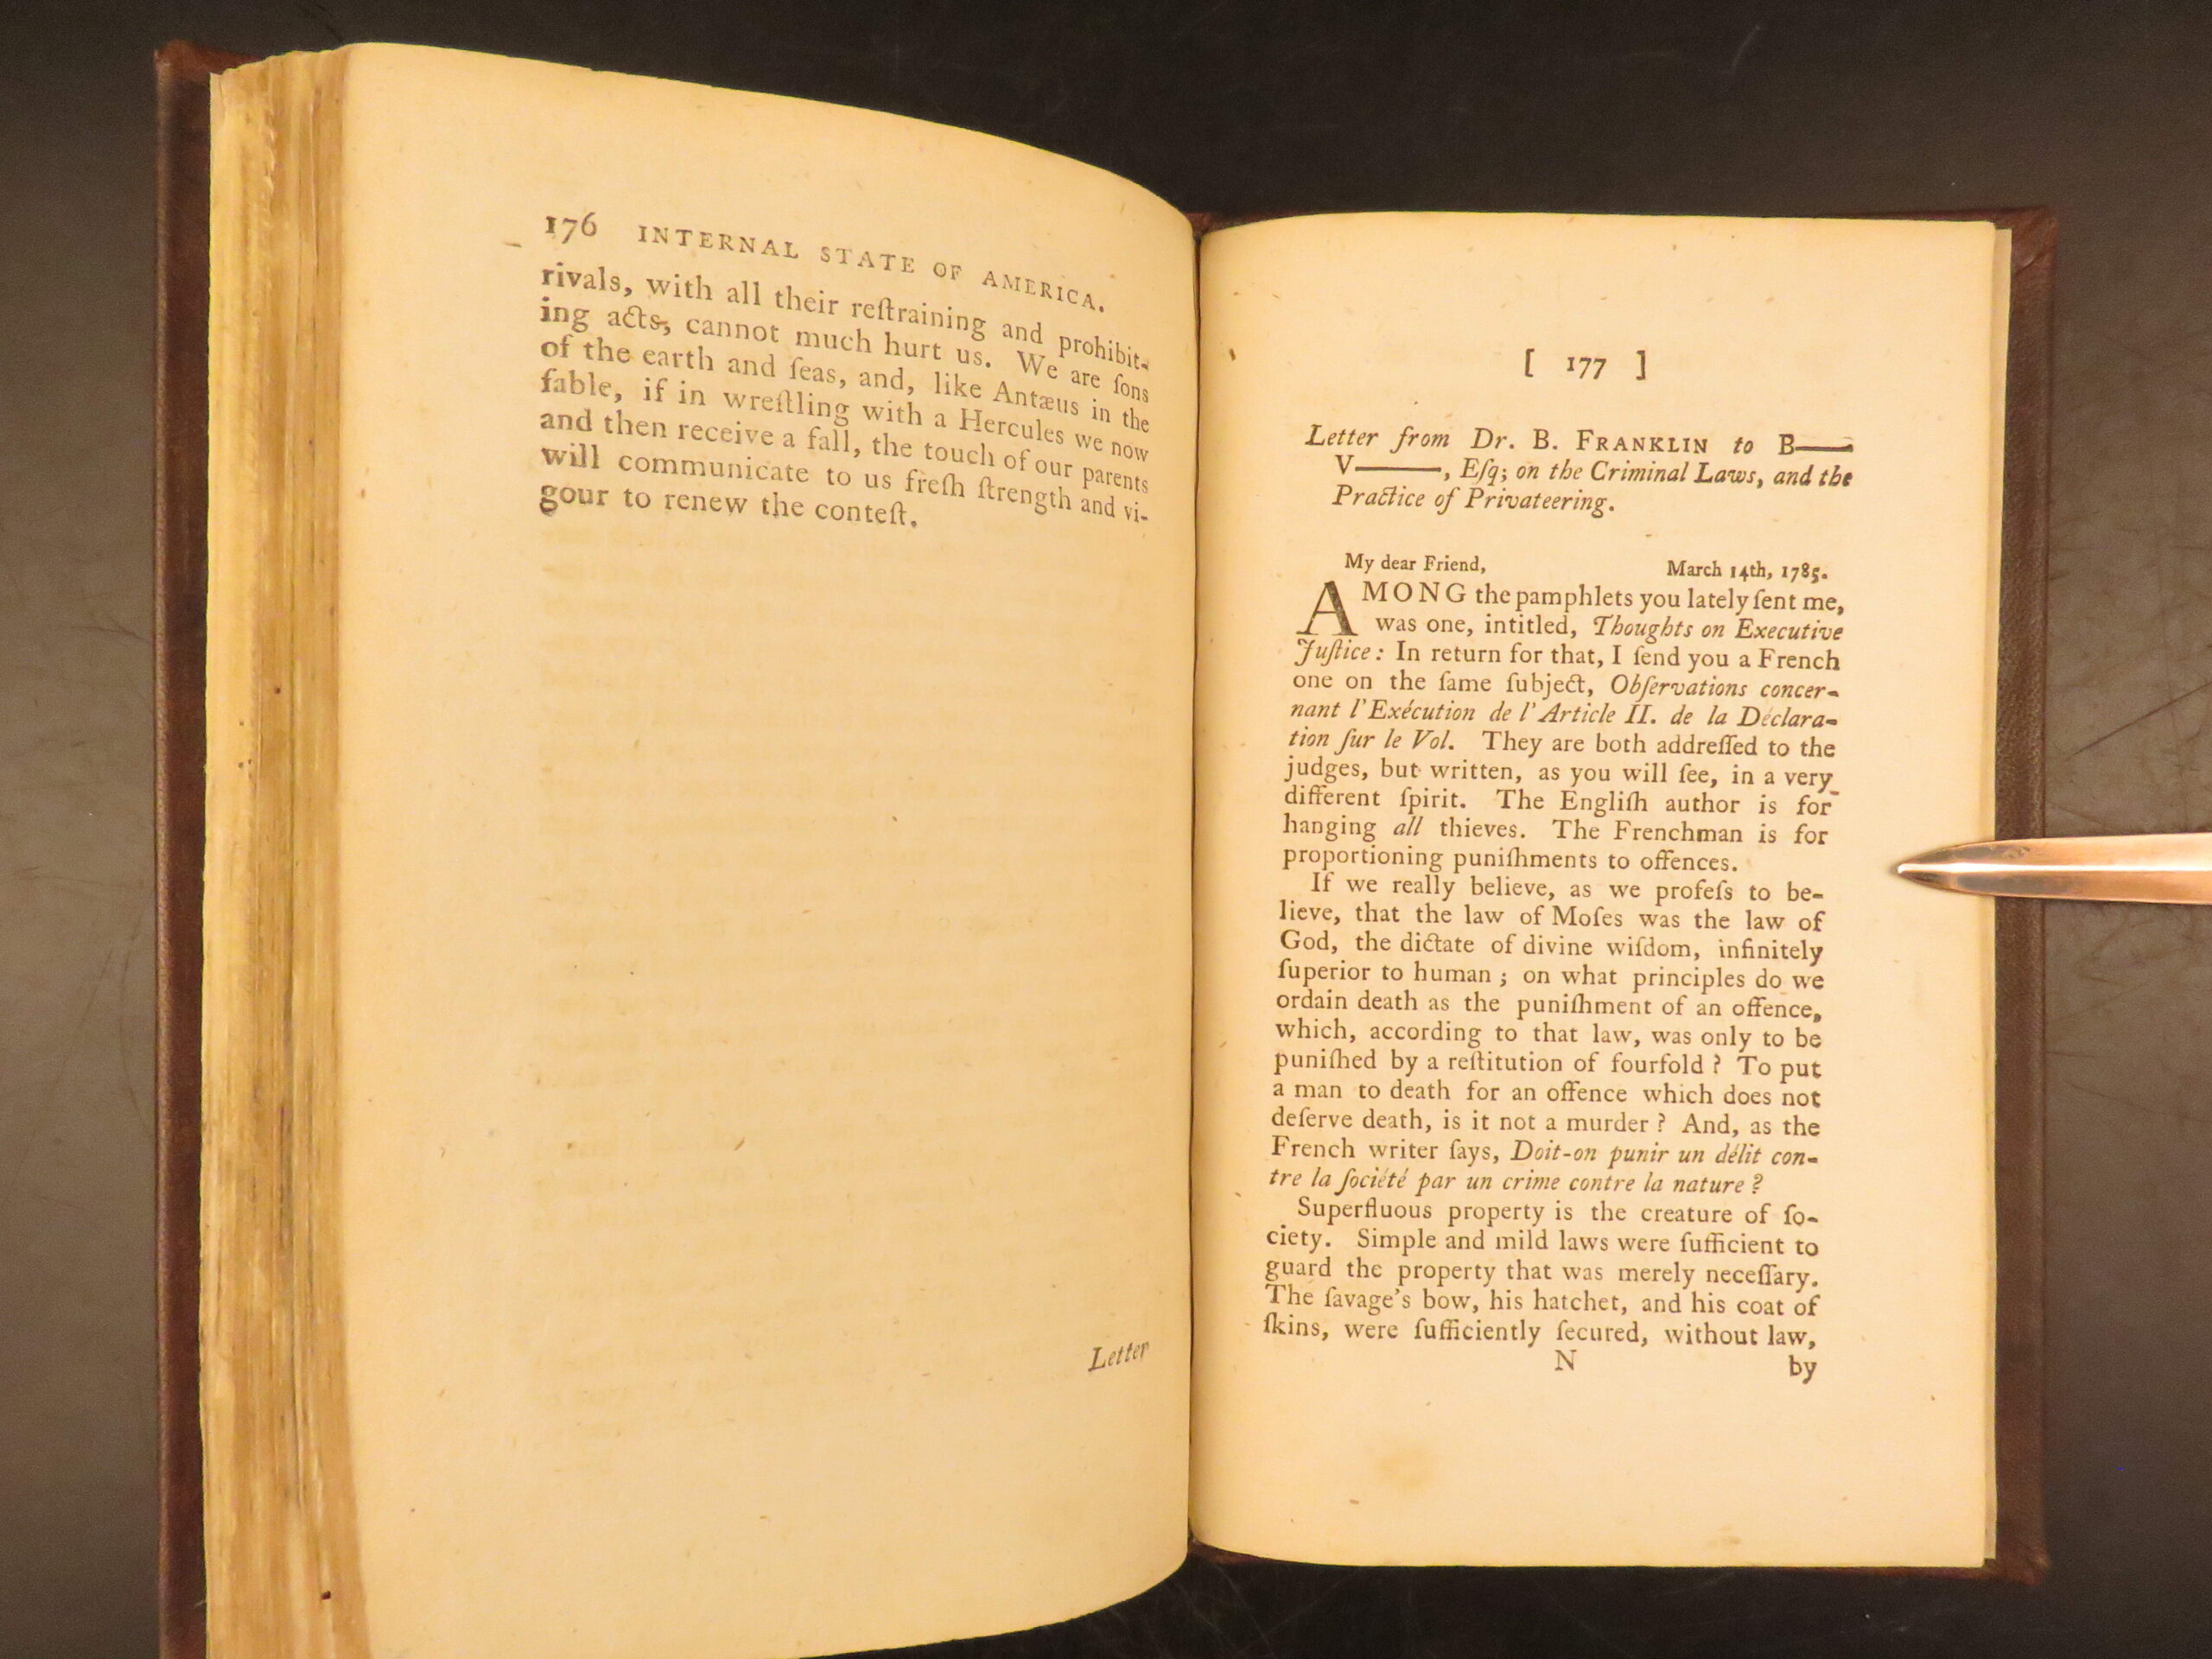 176 INTERNAL STATE OF AMERICA.
rivals, with all their reſtraining and prohibit-
ing acts, cannot much hurt us. We are ſons
of the earth and ſeas, and, like Antæus in the
fable, if in wreſtling with a Hercules we now
and then receive a fall, the touch of our parents
will communicate to us freſh ſtrength and vi-
gour to renew the conteſt.
Letter
[ 177 ]
Letter from Dr. B. FRANKLIN to B——
V———, Eſq; on the Criminal Laws, and the
Practice of Privateering.
My dear Friend, March 14th, 1785.
AMONG the pamphlets you lately ſent me,
was one, intitled, Thoughts on Executive
Juſtice: In return for that, I ſend you a French
one on the ſame ſubject, Obſervations concer-
nant l'Exécution de l'Article II. de la Déclara-
tion ſur le Vol. They are both addreſſed to the
judges, but written, as you will ſee, in a very
different ſpirit. The Engliſh author is for
hanging all thieves. The Frenchman is for
proportioning puniſhments to offences.
If we really believe, as we profeſs to be-
lieve, that the law of Moſes was the law of
God, the dictate of divine wiſdom, infinitely
ſuperior to human; on what principles do we
ordain death as the puniſhment of an offence,
which, according to that law, was only to be
puniſhed by a reſtitution of fourfold? To put
a man to death for an offence which does not
deſerve death, is it not a murder? And, as the
French writer ſays, Doit-on punir un délit con-
tre la ſociété par un crime contre la nature?
Superfluous property is the creature of ſo-
ciety. Simple and mild laws were ſufficient to
guard the property that was merely neceſſary.
The ſavage's bow, his hatchet, and his coat of
ſkins, were ſufficiently ſecured, without law,
N by